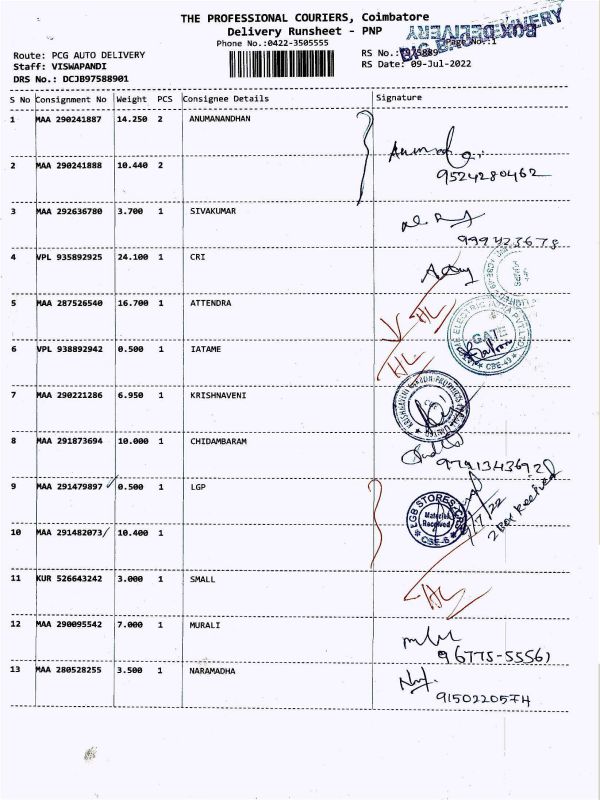 THE PROFESSIONAL COURIERS, Coimbatore
Delivery Runsheet - PNP
Phone No.:0422-3505555
BOX DELIVERY
Page No.:1
Route: PCG AUTO DELIVERY
Staff: VISWAPANDI
DRS No.: DCJB97588901
RS No.:
RS Date: 09-Jul-2022
S No Consignment No Weight PCS Consignee Details Signature
1 MAA 290241887 14.250 2 ANUMANANDHAN
2 MAA 290241888 10.440 2
9524280462
3 MAA 292636780 3.700 1 SIVAKUMAR
4 VPL 935892925 24.100 1 CRI
5 MAA 287526540 16.700 1 ATTENDRA
HC
GATE
CBE-49
6 VPL 938892942 0.500 1 IATAME
HC
7 MAA 290221286 6.950 1 KRISHNAVENI
8 MAA 291873694 10.000 1 CHIDAMBARAM
9 MAA 291479897 0.500 1 LGP
LGB STORES
Materials
Received
CBE-6
9/7/22
2 Box Received
10 MAA 291482073/ 10.400 1
11 KUR 526643242 3.000 1 SMALL
HC
12 MAA 290095542 7.000 1 MURALI
96775-55561
13 MAA 280528255 3.500 1 NARAMADHA
9150220574